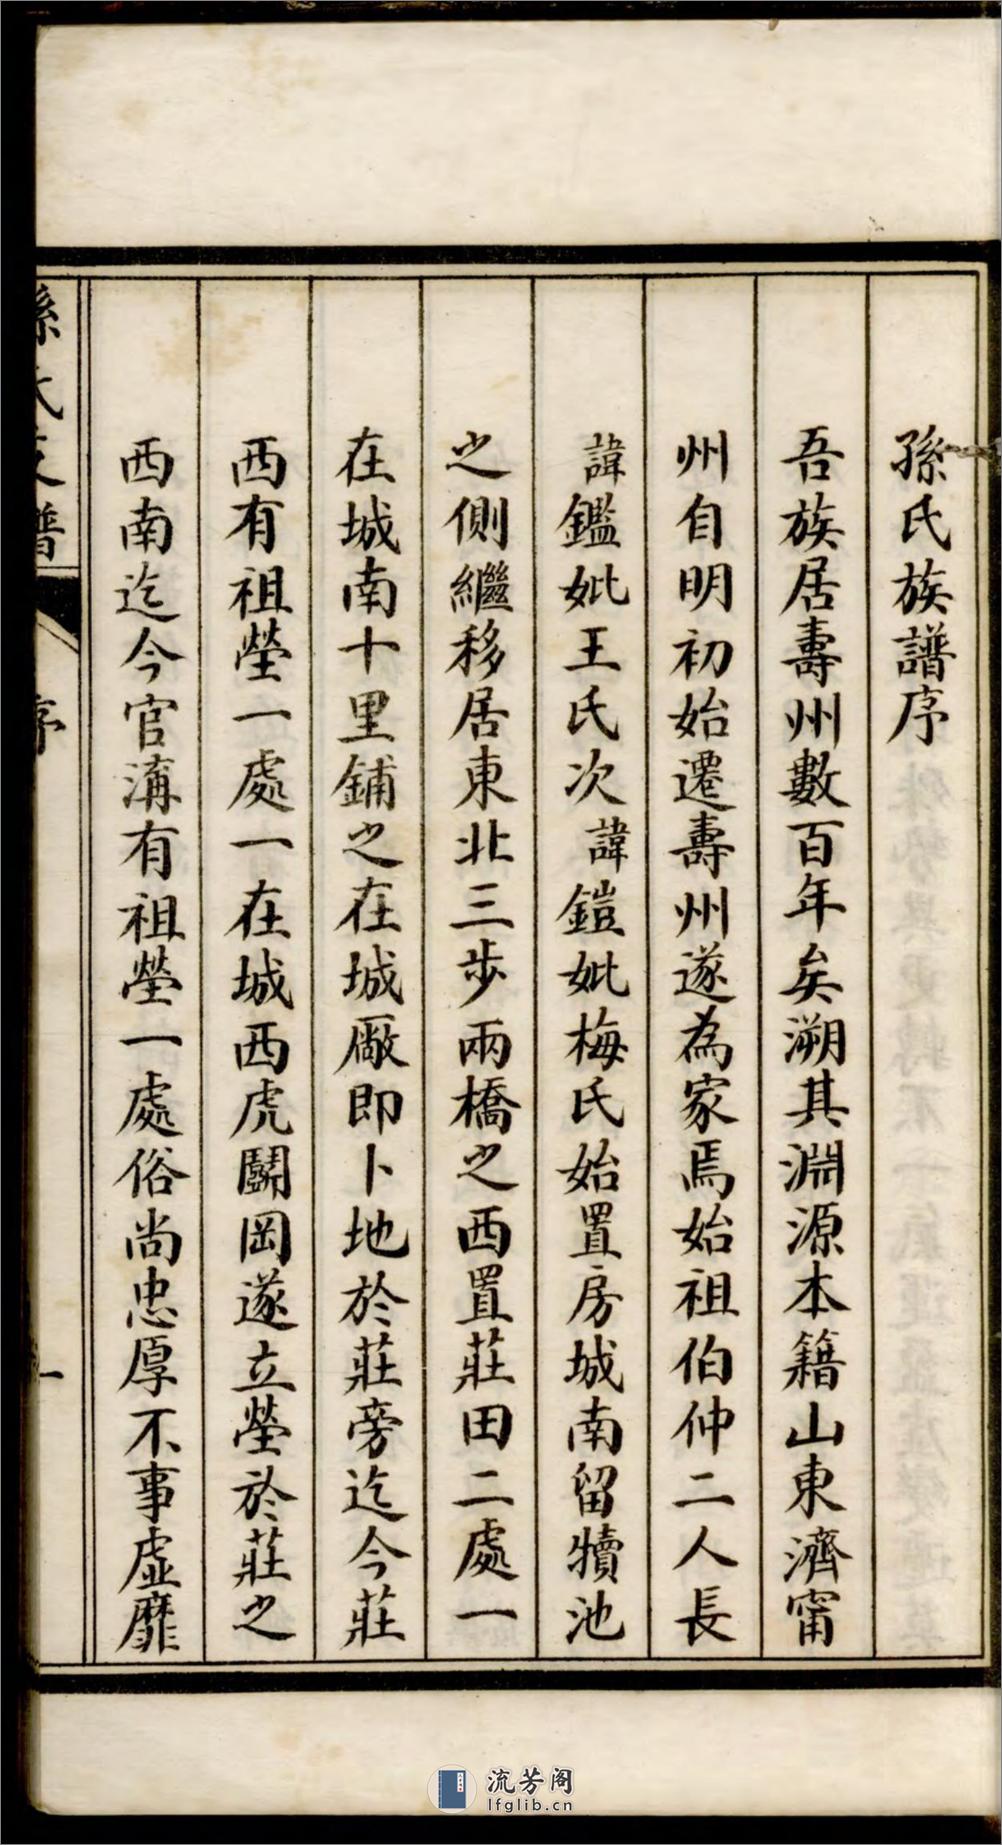 孫氏族譜序
吾族居壽州數百年矣溯其淵源本籍山東濟甯
州自明初始遷壽州遂為家焉始祖伯仲二人長
諱鑑妣王氏次諱鎧妣梅氏始置房城南留犢池
之側繼移居東北三步兩橋之西置莊田二處一
在城南十里鋪之在城厰即卜地於莊旁迄今莊
西有祖塋一處一在城西虎鬭岡遂立塋於莊之
西南迄今官溝有祖塋一處俗尚忠厚不事虛靡
孫氏支譜
序
一
流芳阁
lfglib.cn